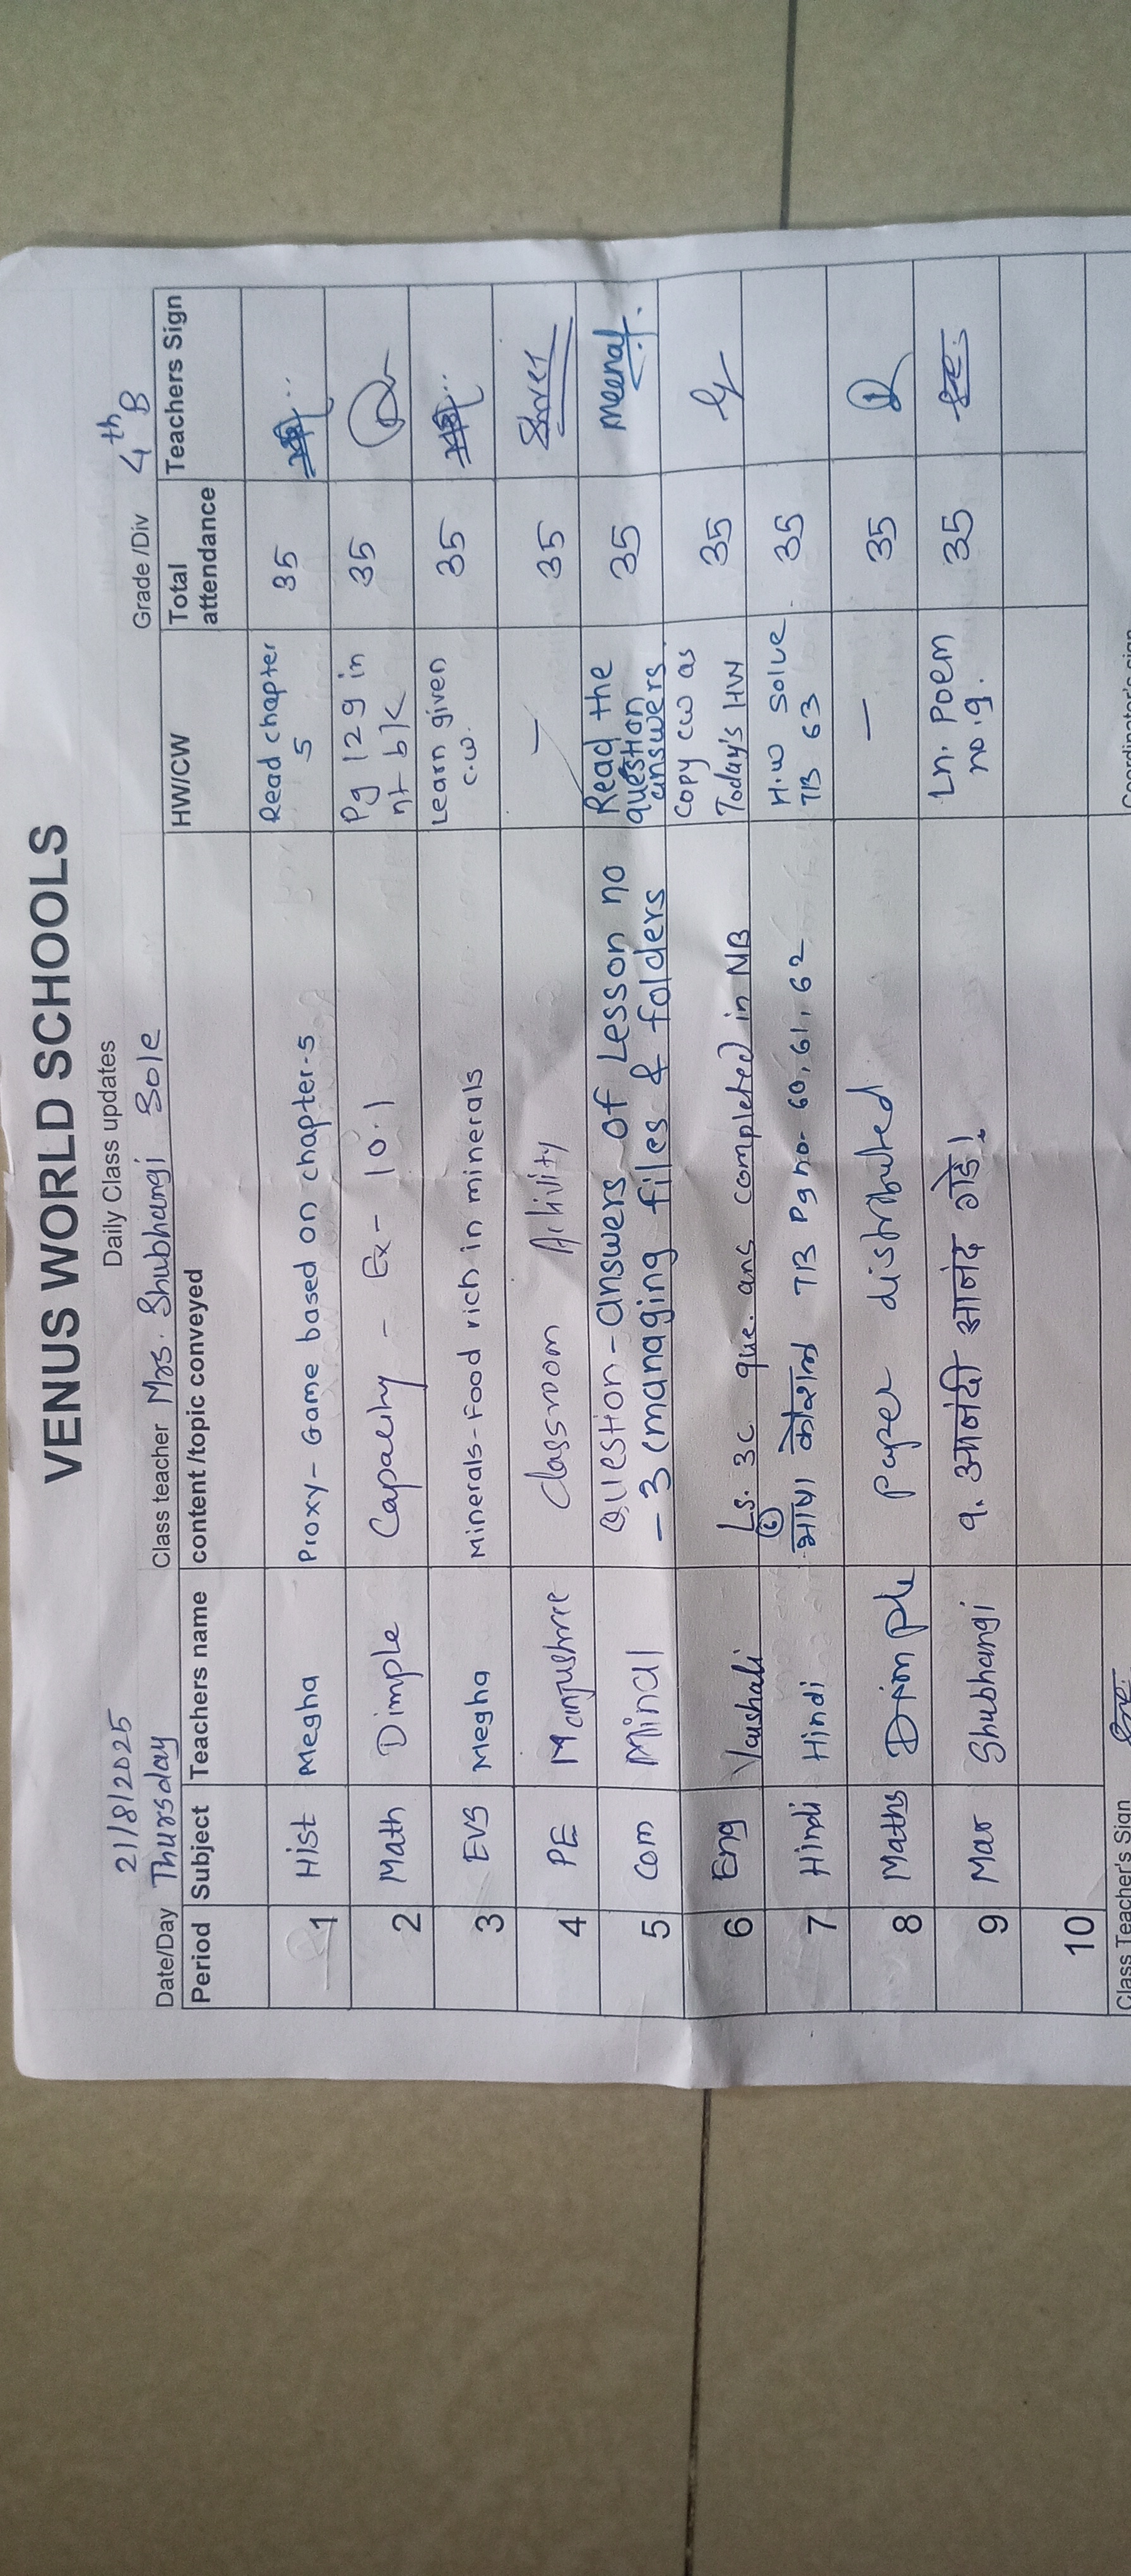 VENUS WORLD SCHOOLS
Daily Class updates
21/8/2025
Date/Day Thursday Class teacher Mrs. Shubhangi Bole Grade /Div 4th B
Period Subject Teachers name content /topic conveyed HW/CW Total attendance Teachers Sign
1 Hist Megha Proxy - Game based on chapter-5 Read chapter 5 35
2 Math Dimple Capacity - Ex - 10.1 Pg 129 in nt bk 35
3 EVS Megha Minerals - Food rich in minerals Learn given c.w. 35
4 PE Manjushree Classroom Activity - 35
5 Com Minal Question - answers of Lesson no - 3 (managing files & folders Read the question answers. 35 Meenal.
6 Eng Vaishali Ls. 3C que. ans completed in NB Copy cw as Today's HW 35
7 Hindi Hindi भाषा कौशल TB Pg no- 60, 61, 62 H.W solve TB 63 35
8 Maths Dimple Paper distributed - 35
9 Mar Shubhangi ९. आनंदी आनंद गडे! Ln. Poem no.9. 35
10
Class Teacher's Sign Coordinator's sign